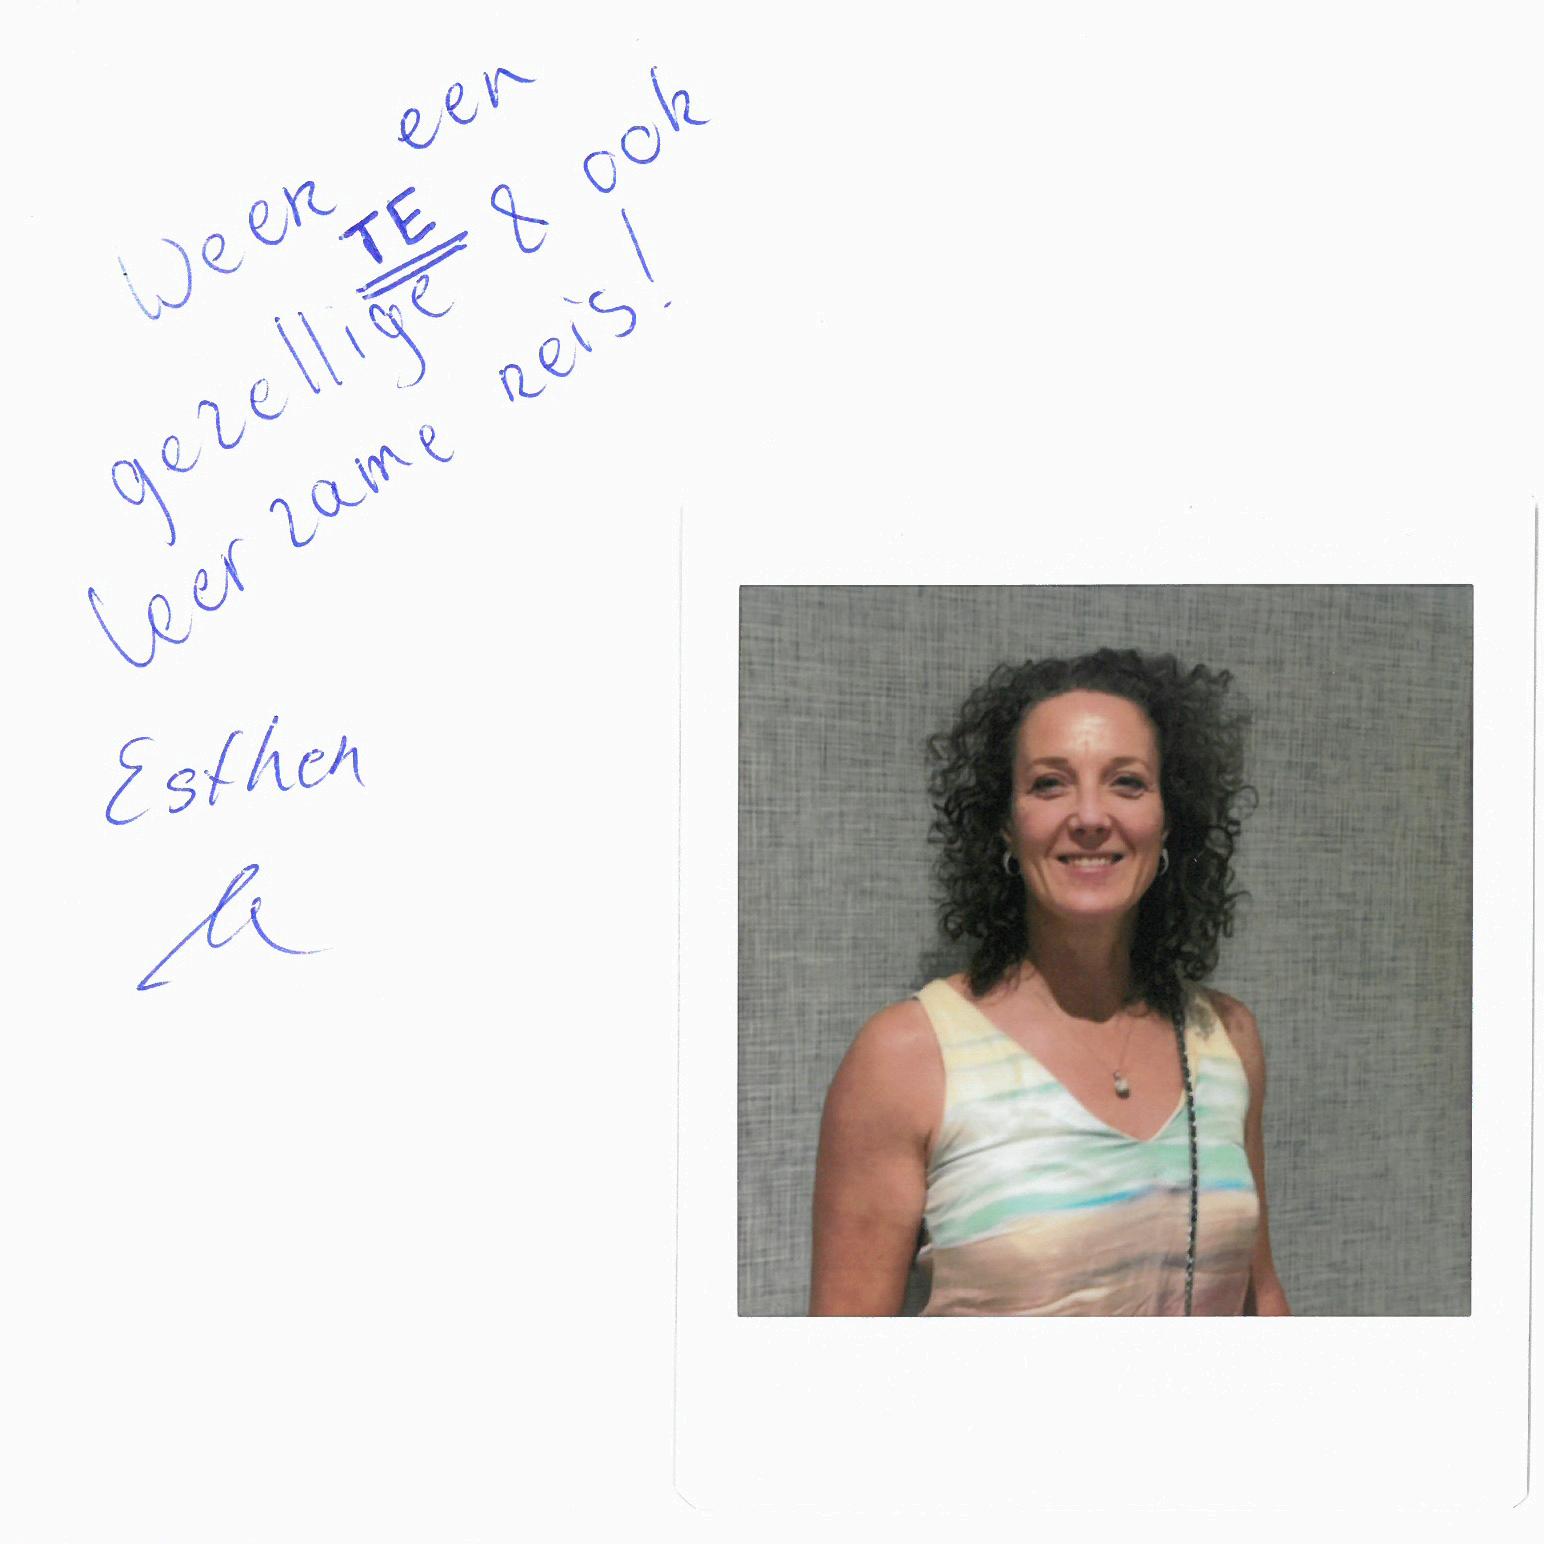 Weer een
TE
gezellige & ook
leerzame reis!
Esther